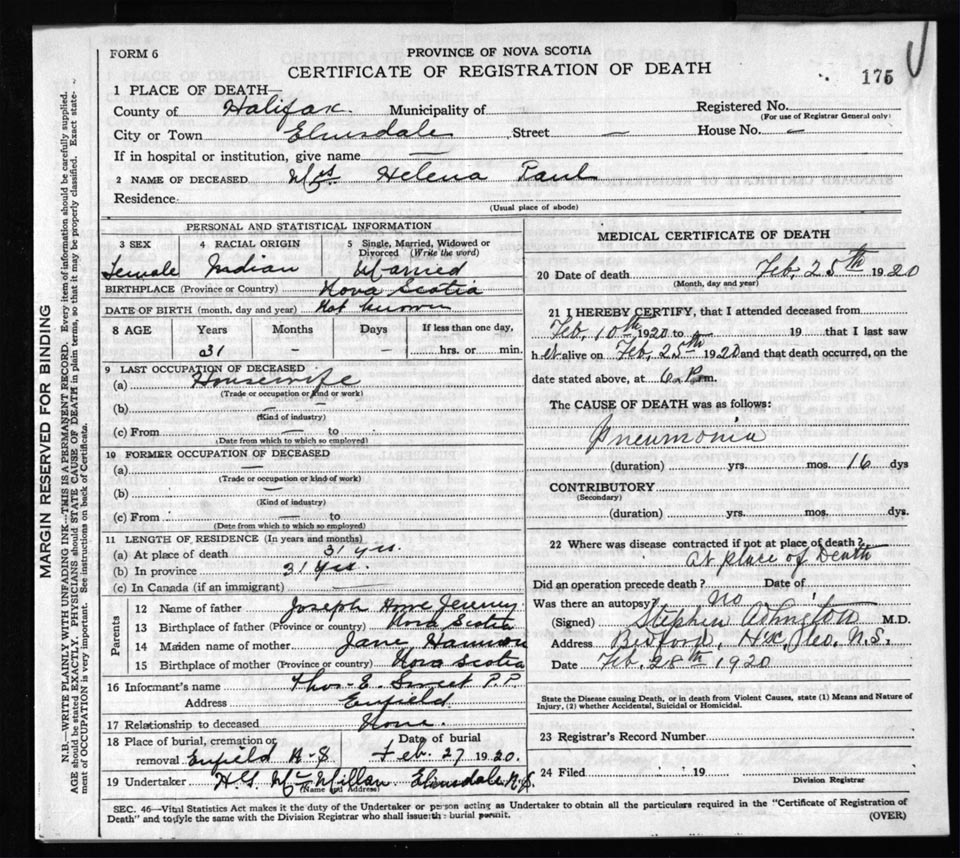 FORM 6
PROVINCE OF NOVA SCOTIA
CERTIFICATE OF REGISTRATION OF DEATH
175
1 PLACE OF DEATH—
County of Halifax. Municipality of Registered No.
(For use of Registrar General only)
City or Town Elmsdale Street — House No. —
If in hospital or institution, give name —
2 NAME OF DECEASED Mrs. Helena Paul
Residence
(Usual place of abode)
PERSONAL AND STATISTICAL INFORMATION
3 SEX 4 RACIAL ORIGIN 5 Single, Married, Widowed or Divorced (Write the word)
Female Indian Married
BIRTHPLACE (Province or Country) Nova Scotia
DATE OF BIRTH (month, day and year) Not known
8 AGE Years Months Days If less than one day,
31 — — hrs. or min.
9 LAST OCCUPATION OF DECEASED
(a) Housewife
(Trade or occupation or kind of work)
(b) —
(Kind of industry)
(c) From — to
(Date from which to which so employed)
10 FORMER OCCUPATION OF DECEASED
(a) —
(Trade or occupation or kind of work)
(b) —
(Kind of industry)
(c) From — to
(Date from which to which so employed)
11 LENGTH OF RESIDENCE (In years and months)
(a) At place of death 31 yrs.
(b) In province 31 yrs.
(c) In Canada (if an immigrant) —
Parents
12 Name of father Joseph Howe Jeremy
13 Birthplace of father (Province or country) Nova Scotia
14 Maiden name of mother Jane
15 Birthplace of mother (Province or country) Nova Scotia
16 Informant's name Thos. E. Sweet P.P.
Address Enfield
17 Relationship to deceased None.
18 Place of burial, cremation or Date of burial
removal Enfield N.S. Feb. 27 1920.
19 Undertaker H.G. McMillan Elmsdale N.S.
(Name and Address)
MEDICAL CERTIFICATE OF DEATH
20 Date of death Feb. 25th 1920
(Month, day and year)
21 I HEREBY CERTIFY, that I attended deceased from
Feb. 10th 1920 to — 19 that I last saw
her alive on Feb. 25th 1920 and that death occurred, on the
date stated above, at 6 P.m.
The CAUSE OF DEATH was as follows:
Pneumonia
(duration) yrs. mos. 16 dys
CONTRIBUTORY
(Secondary)
(duration) yrs. mos. dys.
22 Where was disease contracted if not at place of death?
At place of Death
Did an operation precede death? Date of
Was there an autopsy? No
(Signed) M.D.
Address Bedford, Hx, Co. N.S.
Date Feb. 28th 1920
State the Disease causing Death, or in death from Violent Causes, state (1) Means and Nature of
Injury, (2) whether Accidental, Suicidal or Homicidal.
23 Registrar's Record Number
24 Filed 19
Division Registrar
SEC. 46—Vital Statistics Act makes it the duty of the Undertaker or person acting as Undertaker to obtain all the particulars required in the "Certificate of Registration of
Death" and to file the same with the Division Registrar who shall issue the burial permit. (OVER)
MARGIN RESERVED FOR BINDING
N.B.—WRITE PLAINLY WITH UNFADING INK—THIS IS A PERMANENT RECORD. Every item of information should be carefully supplied.
AGE should be stated EXACTLY. PHYSICIANS should STATE CAUSE OF DEATH in plain terms, so that it may be properly classified. Exact state-
ment of OCCUPATION is very important. See instructions on back of Certificate.